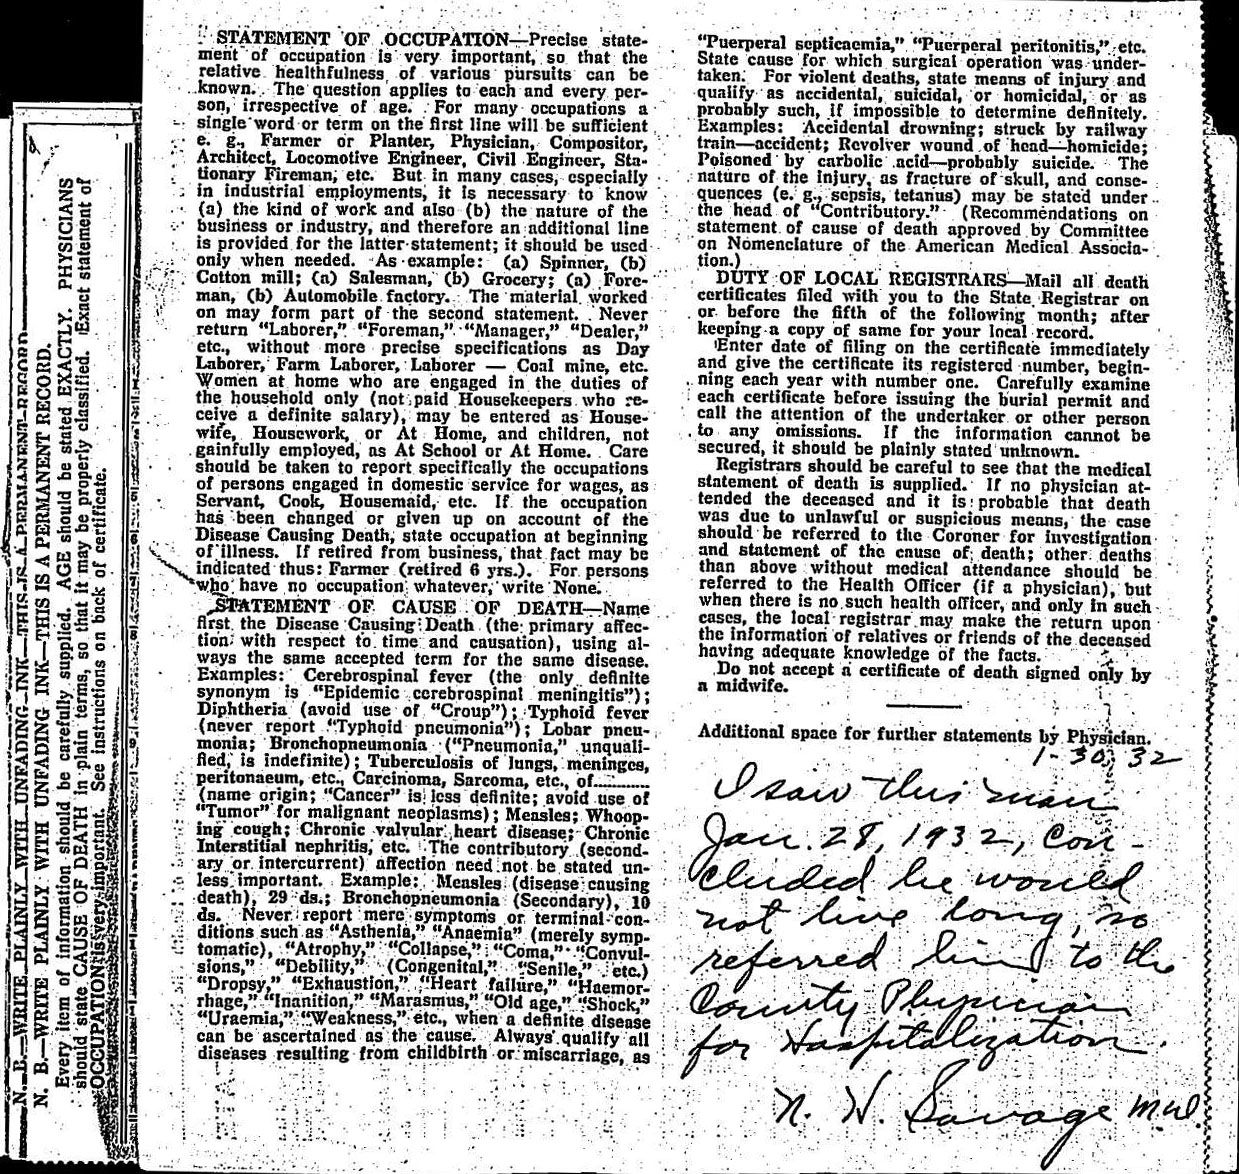 N. B.—WRITE PLAINLY WITH UNFADING INK—THIS IS A PERMANENT RECORD
N. B.—WRITE PLAINLY WITH UNFADING INK—THIS IS A PERMANENT RECORD.
Every item of information should be carefully supplied. AGE should be stated EXACTLY. PHYSICIANS
should state CAUSE OF DEATH in plain terms, so that it may be properly classified. Exact statement of
OCCUPATION is very important. See instructions on back of certificate.
STATEMENT OF OCCUPATION—Precise state-
ment of occupation is very important, so that the
relative healthfulness of various pursuits can be
known. The question applies to each and every per-
son, irrespective of age. For many occupations a
single word or term on the first line will be sufficient
e. g., Farmer or Planter, Physician, Compositor,
Architect, Locomotive Engineer, Civil Engineer, Sta-
tionary Fireman, etc. But in many cases, especially
in industrial employments, it is necessary to know
(a) the kind of work and also (b) the nature of the
business or industry, and therefore an additional line
is provided for the latter statement; it should be used
only when needed. As example: (a) Spinner, (b)
Cotton mill; (a) Salesman, (b) Grocery; (a) Fore-
man, (b) Automobile factory. The material worked
on may form part of the second statement. Never
return "Laborer," "Foreman," "Manager," "Dealer,"
etc., without more precise specifications as Day
Laborer, Farm Laborer, Laborer — Coal mine, etc.
Women at home who are engaged in the duties of
the household only (not paid Housekeepers who re-
ceive a definite salary), may be entered as House-
wife, Housework, or At Home, and children, not
gainfully employed, as At School or At Home. Care
should be taken to report specifically the occupations
of persons engaged in domestic service for wages, as
Servant, Cook, Housemaid, etc. If the occupation
has been changed or given up on account of the
Disease Causing Death, state occupation at beginning
of illness. If retired from business, that fact may be
indicated thus: Farmer (retired 6 yrs.). For persons
who have no occupation whatever, write None.
STATEMENT OF CAUSE OF DEATH—Name
first the Disease Causing Death (the primary affec-
tion with respect to time and causation), using al-
ways the same accepted term for the same disease.
Examples: Cerebrospinal fever (the only definite
synonym is "Epidemic cerebrospinal meningitis");
Diphtheria (avoid use of "Croup"); Typhoid fever
(never report "Typhoid pneumonia"); Lobar pneu-
monia; Bronchopneumonia ("Pneumonia," unquali-
fied, is indefinite); Tuberculosis of lungs, meninges,
peritonaeum, etc., Carcinoma, Sarcoma, etc., of............
(name origin; "Cancer" is less definite; avoid use of
"Tumor" for malignant neoplasms); Measles; Whoop-
ing cough; Chronic valvular heart disease; Chronic
Interstitial nephritis, etc. The contributory (second-
ary or intercurrent) affection need not be stated un-
less important. Example: Measles (disease causing
death), 29 ds.; Bronchopneumonia (Secondary), 10
ds. Never report mere symptoms or terminal con-
ditions such as "Asthenia," "Anaemia" (merely symp-
tomatic), "Atrophy," "Collapse," "Coma," "Convul-
sions," "Debility," (Congenital," "Senile," etc.)
"Dropsy," "Exhaustion," "Heart failure," "Haemor-
rhage," "Inanition," "Marasmus," "Old age," "Shock,"
"Uraemia," "Weakness," etc., when a definite disease
can be ascertained as the cause. Always qualify all
diseases resulting from childbirth or miscarriage, as
"Puerperal septicaemia," "Puerperal peritonitis," etc.
State cause for which surgical operation was under-
taken. For violent deaths, state means of injury and
qualify as accidental, suicidal, or homicidal, or as
probably such, if impossible to determine definitely.
Examples: Accidental drowning; struck by railway
train—accident; Revolver wound of head—homicide;
Poisoned by carbolic acid—probably suicide. The
nature of the injury, as fracture of skull, and conse-
quences (e. g., sepsis, tetanus) may be stated under
the head of "Contributory." (Recommendations on
statement of cause of death approved by Committee
on Nomenclature of the American Medical Associa-
tion.)
DUTY OF LOCAL REGISTRARS—Mail all death
certificates filed with you to the State Registrar on
or before the fifth of the following month; after
keeping a copy of same for your local record.
Enter date of filing on the certificate immediately
and give the certificate its registered number, begin-
ning each year with number one. Carefully examine
each certificate before issuing the burial permit and
call the attention of the undertaker or other person
to any omissions. If the information cannot be
secured, it should be plainly stated unknown.
Registrars should be careful to see that the medical
statement of death is supplied. If no physician at-
tended the deceased and it is probable that death
was due to unlawful or suspicious means, the case
should be referred to the Coroner for investigation
and statement of the cause of death; other deaths
than above without medical attendance should be
referred to the Health Officer (if a physician), but
when there is no such health officer, and only in such
cases, the local registrar may make the return upon
the information of relatives or friends of the deceased
having adequate knowledge of the facts.
Do not accept a certificate of death signed only by
a midwife.
Additional space for further statements by Physician.
1-30, 32
I saw this man
Jan. 28, 1932, Con-
cluded he would
not live long, so
referred him to the
County Physician
for Hospitalization.
N. W. Savage M.D.